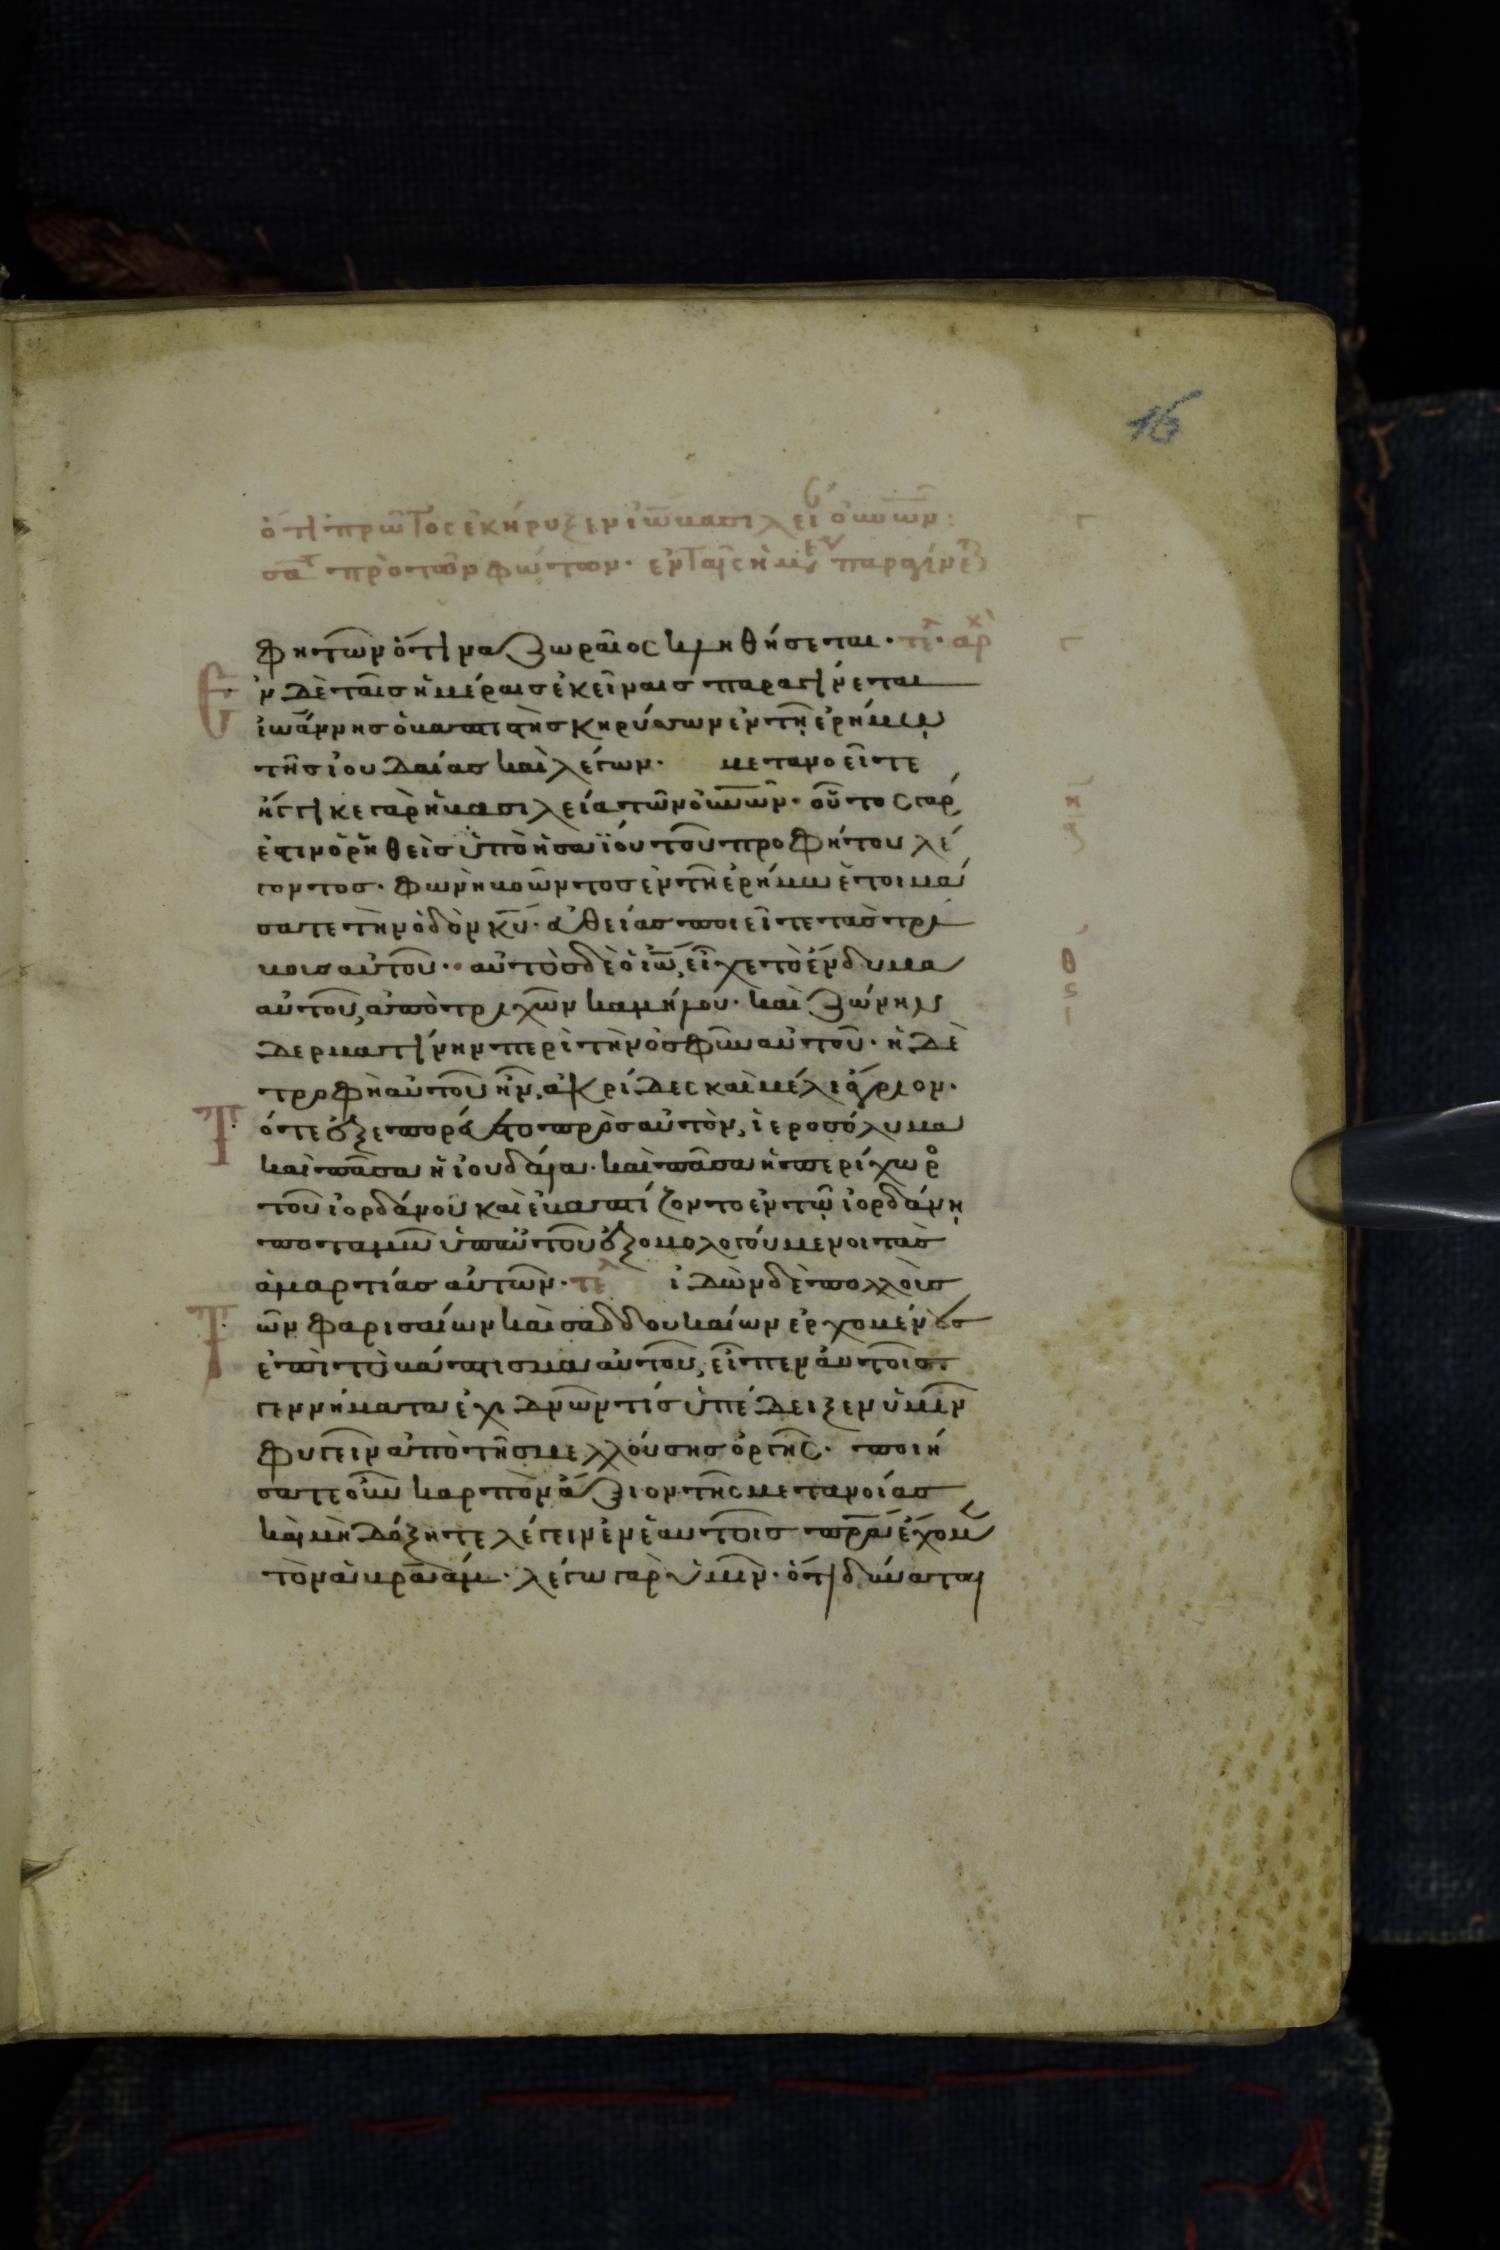 16
ὅτι πρῶτος ἐκήρυξεν ἰω βασιλεί οὐνῶν:
σα πρὸ τῶν φώτων. ἐν ταῖς ἡμ παραγίνε
φητῶν ὅτι ναζωραῖος κληθήσεται. τε. αρχ
Ε ν δὲ ταῖς ἡμέραις ἐκείναις παραγίνεται
ἰωάννης ὁ βαπτιστὴς κηρύσσων ἐν τῇ ἐρήμῳ
τῆς ἰουδαίας καὶ λέγων. μετανοεῖτε
ἤγγικε γὰρ ἡ βασιλεία τῶν οὐνῶν. οὗτος γάρ
ἐστιν ὁ ῥηθεὶς ὑπὸ ἠσαΐου τοῦ προφήτου λέ
γοντος. φωνὴ βοῶντος ἐν τῇ ἐρήμω ἑτοιμά
σατε τὴν ὁδὸν κυ. εὐθείας ποιεῖτε τὰς τρί
βους αὐτοῦ. αὐτὸς δὲ ὁ ἰω, εἶχε τὸ ἔνδυμα
αὐτοῦ, ἀπὸ τριχῶν καμήλου. καὶ ζώνην
δερματίνην περὶ τὴν ὀσφὺν αὐτοῦ. ἡ δὲ
τροφὴ αὐτοῦ ἦν, ἀκρίδες καὶ μέλι ἄγριον.
Τ ότε ἐξεπορεύετο πρὸς αὐτὸν, ἱεροσόλυμα
καὶ πᾶσα ἡ ἰουδαία. καὶ πᾶσα ἡ περίχωρο
τοῦ ἰορδάνου καὶ ἐβαπτίζοντο ἐν τῷ ἰορδάνῃ
ποταμῶ ὑπ αὐτοῦ ἐξομολογούμενοι τὰς
ἁμαρτίας αὐτῶν. τελ ἰδὼν δὲ πολλοὺς
Τ ῶν φαρισαίων καὶ σαδδουκαίων ἐρχομένους
ἐπὶ τὸ βάπτισμα αὐτοῦ, εἶπεν αὐτοῖς.
γεννήματα ἐχιδνῶν τίς ὑπέδειξεν ὑμῖν
φυγεῖν ἀπὸ τῆς μελλούσης ὀργῆς. ποιή
σατε οὖν καρπὸν ἄξιον τῆς μετανοίας
καὶ μὴ δόξητε λέγειν ἐν ἑαυτοῖς πρα ἔχομεν
τὸν ἀβραάμ. λέγω γὰρ ὑμῖν. ὅτι δύναται
η
θ
ς